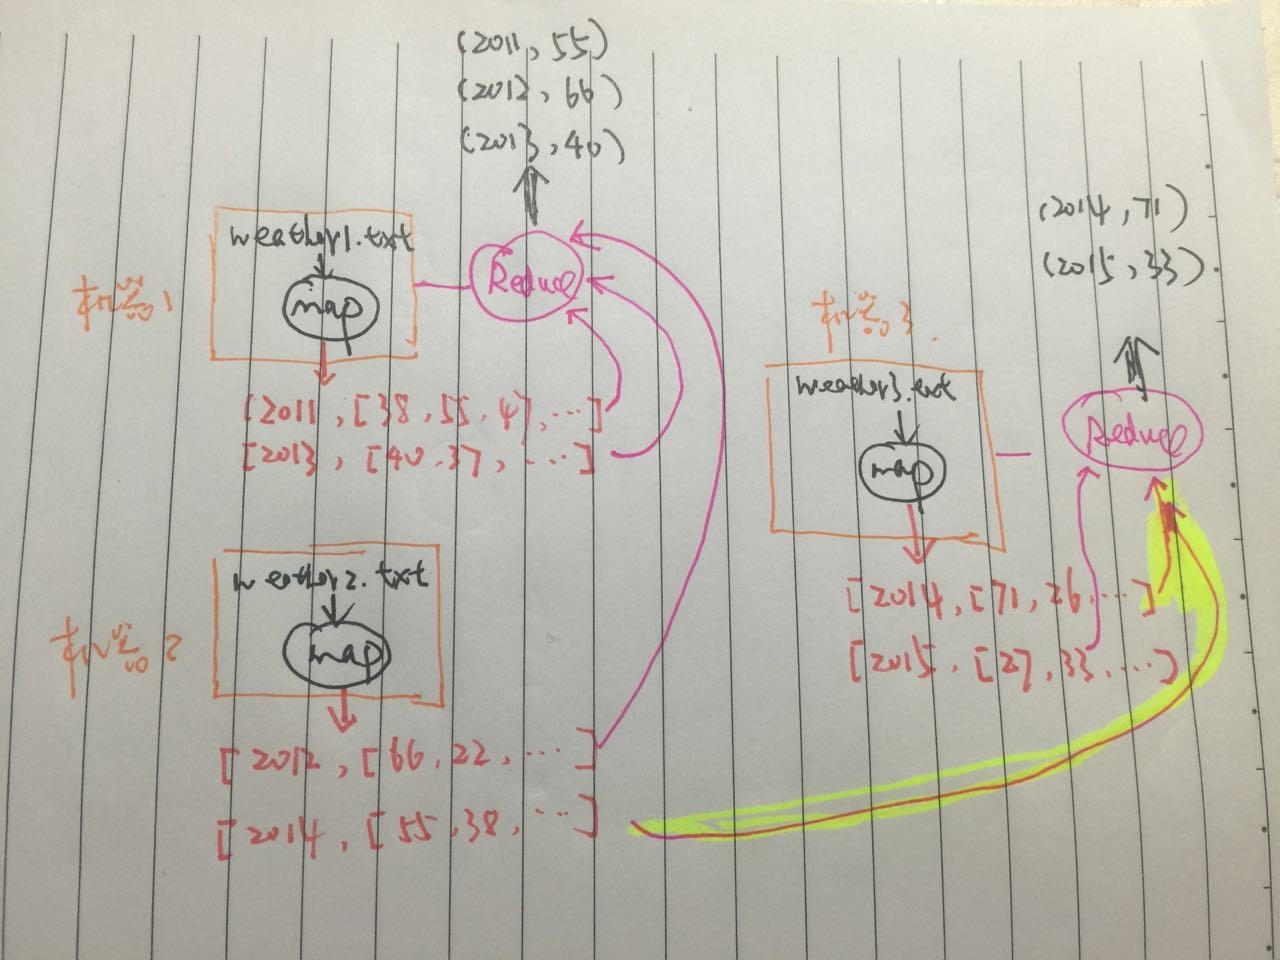 (2011, 55)
(2012, 66)
(2013, 40)
机器1
weather1.txt
map
Reduce
(2011, [38, 55, 47, ...]
[2013, [40, 37, ...]
机器2
weather2.txt
map
[2012, [66, 22, ...]
[2014, [55, 38, ...]
(2014, 71)
(2015, 33)
机器3
weather3.txt
map
Reduce
[2014, [71, 26, ...]
[2015, [27, 33, ...)